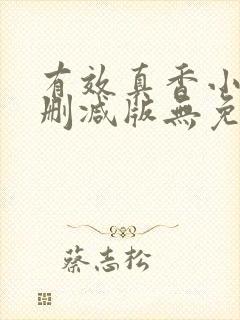 有效真香小
删减版無免
蔡志松